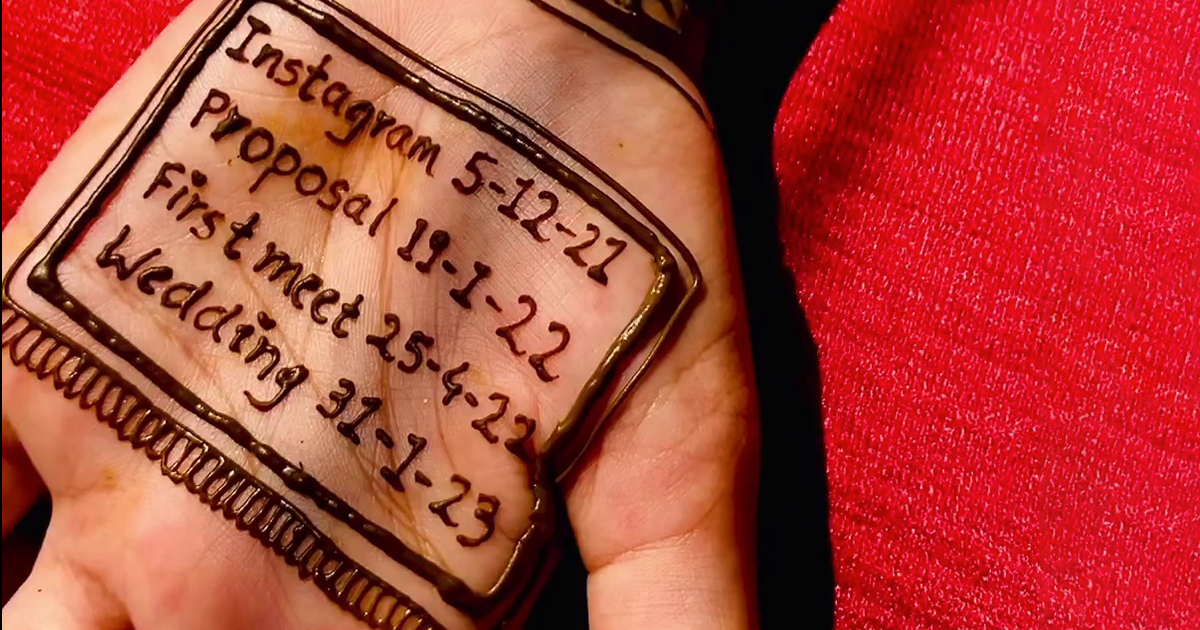 Instagram 5-12-21
Proposal 19-1-22
First meet 25-4-22
Wedding 31-1-23